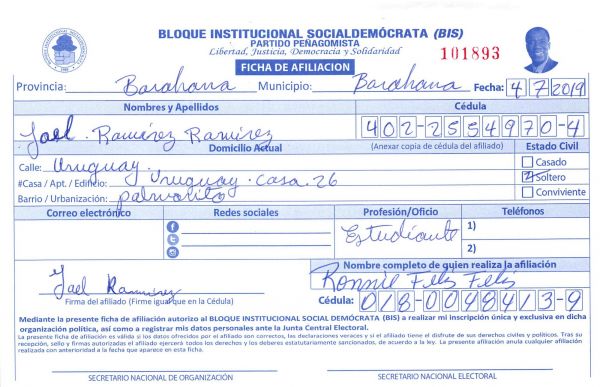 BLOQUE INSTITUCIONAL SOCIALDEMÓCRATA (BIS)
PARTIDO PEÑAGOMISTA
Libertad, Justicia, Democracia y Solidaridad
FICHA DE AFILIACION
101893
Provincia: Barahona Municipio: Barahona Fecha: 4/7/2019
Nombres y Apellidos
Cédula
Jael Ramírez Ramírez
402-2554970-4
Domicilio Actual
(Anexar copia de cédula del afiliado)
Estado Civil
Calle: Uruguay.
Casado
#Casa / Apt. / Edificio: Uruguay. Casa. 26
Soltero
Barrio / Urbanización: palmarito
Conviviente
Correo electrónico
Redes sociales
Profesión/Oficio
Teléfonos
Estudiante
1)
2)
Nombre completo de quien realiza la afiliación
Jael Ramirez
Ronnie Feliz Feliz
Firma del afiliado (Firme igual que en la Cédula)
Cédula: 018-0048413-9
Mediante la presente ficha de afiliación autorizo al BLOQUE INSTITUCIONAL SOCIAL DEMÓCRATA (BIS) a realizar mi inscripción única y exclusiva en dicha
organización política, así como a registrar mis datos personales ante la Junta Central Electoral.
La presente ficha de afiliación es válida si los datos ofrecidos por el afiliado son correctos, las declaraciones veraces y si el afiliado tiene el disfrute de sus derechos civiles y políticos. Tras su
recepción, sello y firmas autorizadas el afiliado ejercerá todos los derechos y los deberes estatutariamente sancionados, de acuerdo a la ley. La presente afiliación anula cualquier afiliación
realizada con anterioridad a la fecha que aparece en esta ficha.
SECRETARIO NACIONAL DE ORGANIZACIÓN
SECRETARIO NACIONAL ELECTORAL